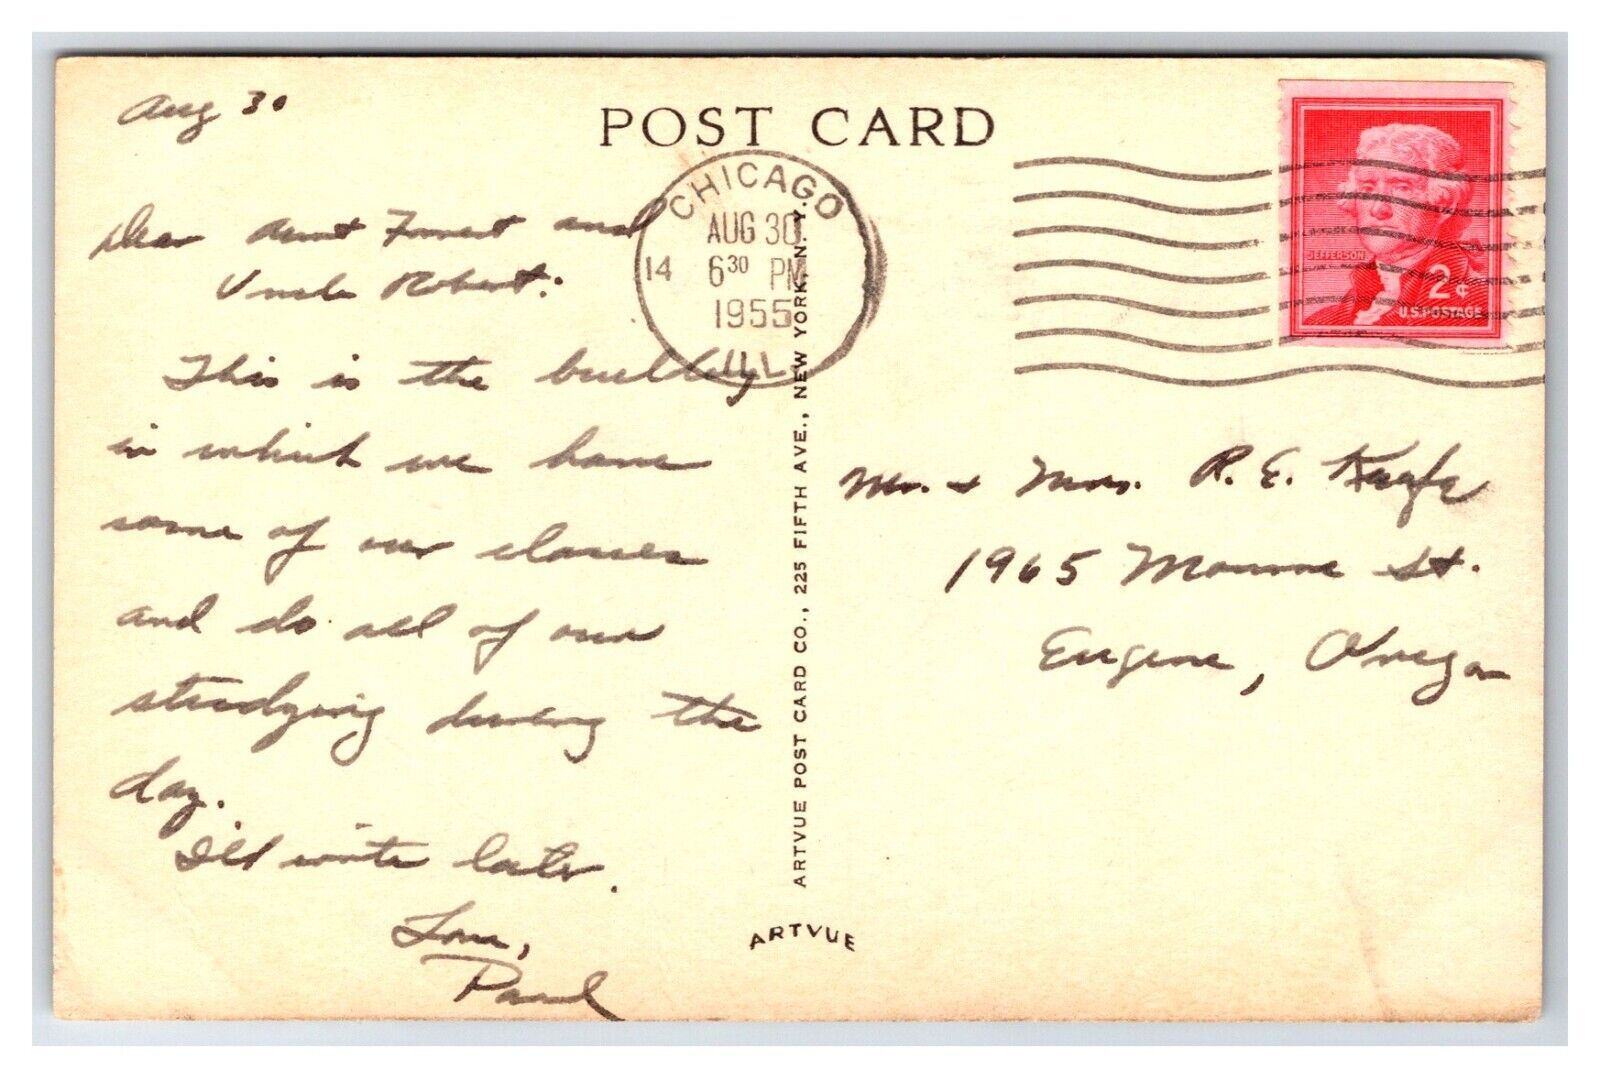 Aug 30
POST CARD
CHICAGO
AUG 30
14 6 30 PM
1955
ILL
JEFFERSON
2¢
U.S. POSTAGE
Dear Aunt and
Uncle Robert:
This is the
in which we have
some of our classes
and do all of our
studying during the
day.
I'll write later.
Love,
Paul
ARTVUE POST CARD CO., 225 FIFTH AVE., NEW YORK, N. Y.
ARTVUE
Mr. & Mrs. R. E. Keefe
1965 Monroe St.
Eugene, Oregon